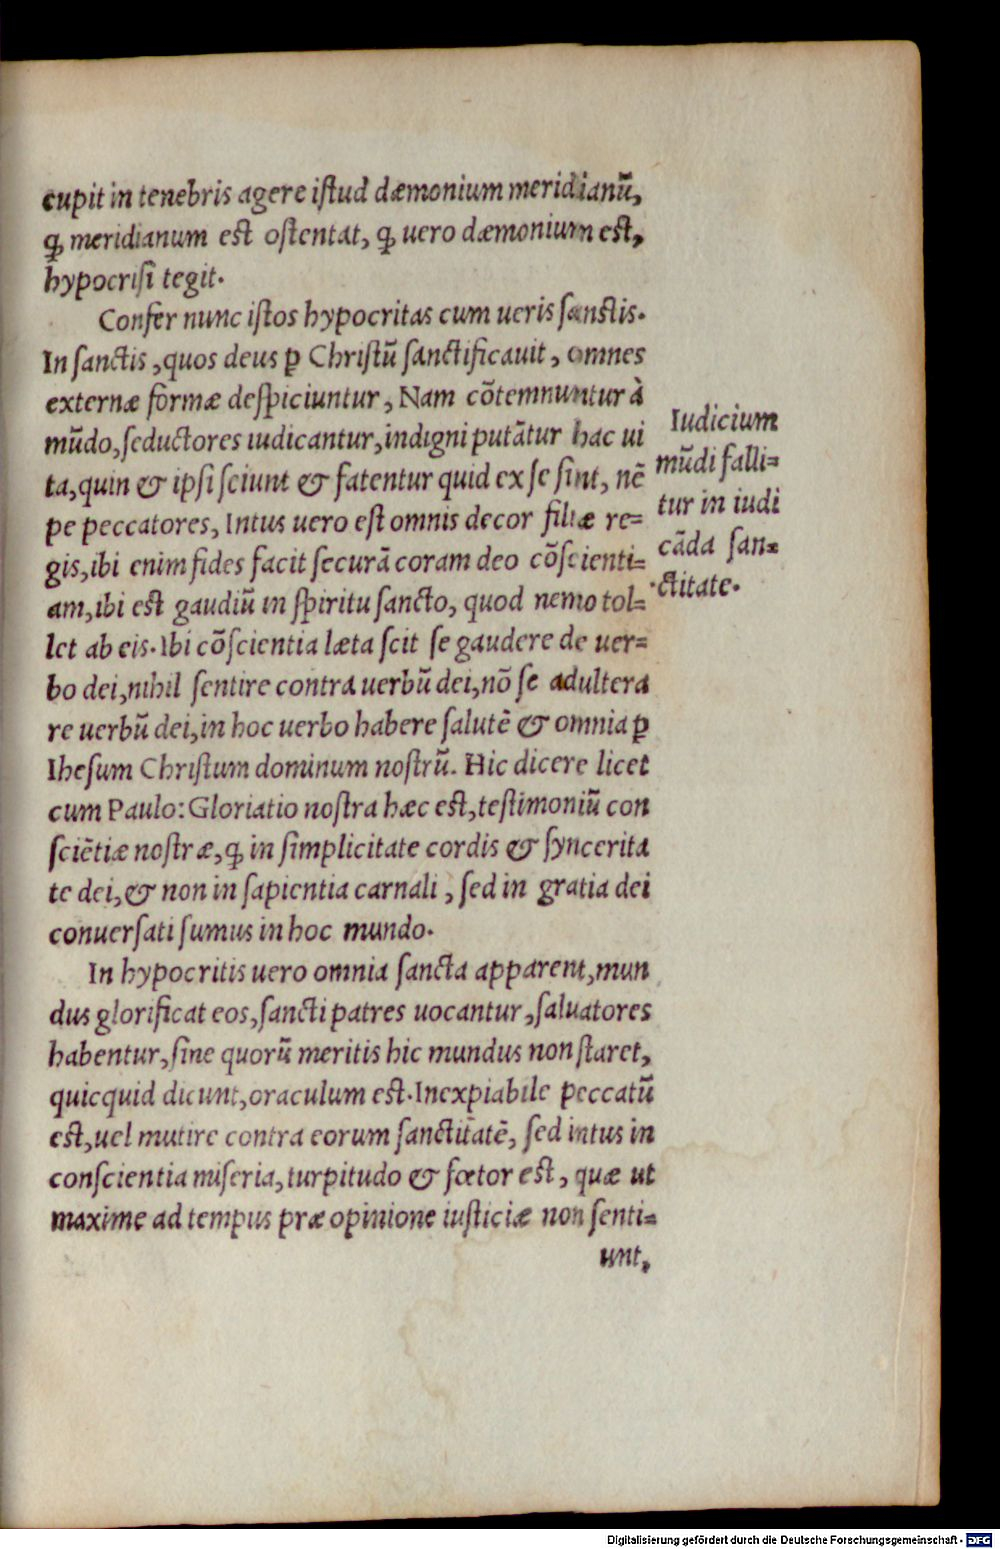 cupit in tenebris agere iſtud dæmonium meridianũ,
ꝙ meridianum eſt oſtentat, ꝙ uero dæmonium eſt,
hypocriſi tegit.
Confer nunc iſtos hypocritas cum ueris ſanctis.
In ſanctis, quos deus ꝑ Chriſtũ ſanctificauit, omnes
externæ formæ deſpiciuntur, Nam cõtemnuntur à
mũdo, ſeductores iudicantur, indigni putãtur hac ui
ta, quin & ipſi ſciunt & fatentur quid ex ſe ſint, nẽ
pe peccatores, Intus uero eſt omnis decor filiæ re=
gis, ibi enim fides facit ſecurã coram deo cõſcienti=
am, ibi eſt gaudiũ in ſpiritu ſancto, quod nemo tol=
let ab eis. Ibi cõſcientia læta ſcit ſe gaudere de uer=
bo dei, nihil ſentire contra uerbũ dei, nõ ſe adultera
re uerbũ dei, in hoc uerbo habere ſalutẽ & omnia ꝑ
Iheſum Chriſtum dominum noſtrũ. Hic dicere licet
cum Paulo: Gloriatio noſtra hæc eſt, teſtimoniũ con
ſciẽtiæ noſtræ, ꝙ in ſimplicitate cordis & ſyncerita
te dei, & non in ſapientia carnali, ſed in gratia dei
conuerſati ſumus in hoc mundo.
In hypocritis uero omnia ſancta apparent, mun
dus glorificat eos, ſancti patres uocantur, ſaluatores
habentur, ſine quorũ meritis hic mundus non ſtaret,
quicquid dicunt, oraculum eſt. Inexpiabile peccatũ
eſt, uel mutire contra eorum ſanctitatẽ, ſed intus in
conſcientia miſeria, turpitudo & fœtor eſt, quæ ut
maxime ad tempus præ opinione iuſticiæ non ſenti=
unt,
Iudicium
mũdi falli=
tur in iudi
cãda ſan=
ctitate.
Digitalisierung gefördert durch die Deutsche Forschungsgemeinschaft - DFG